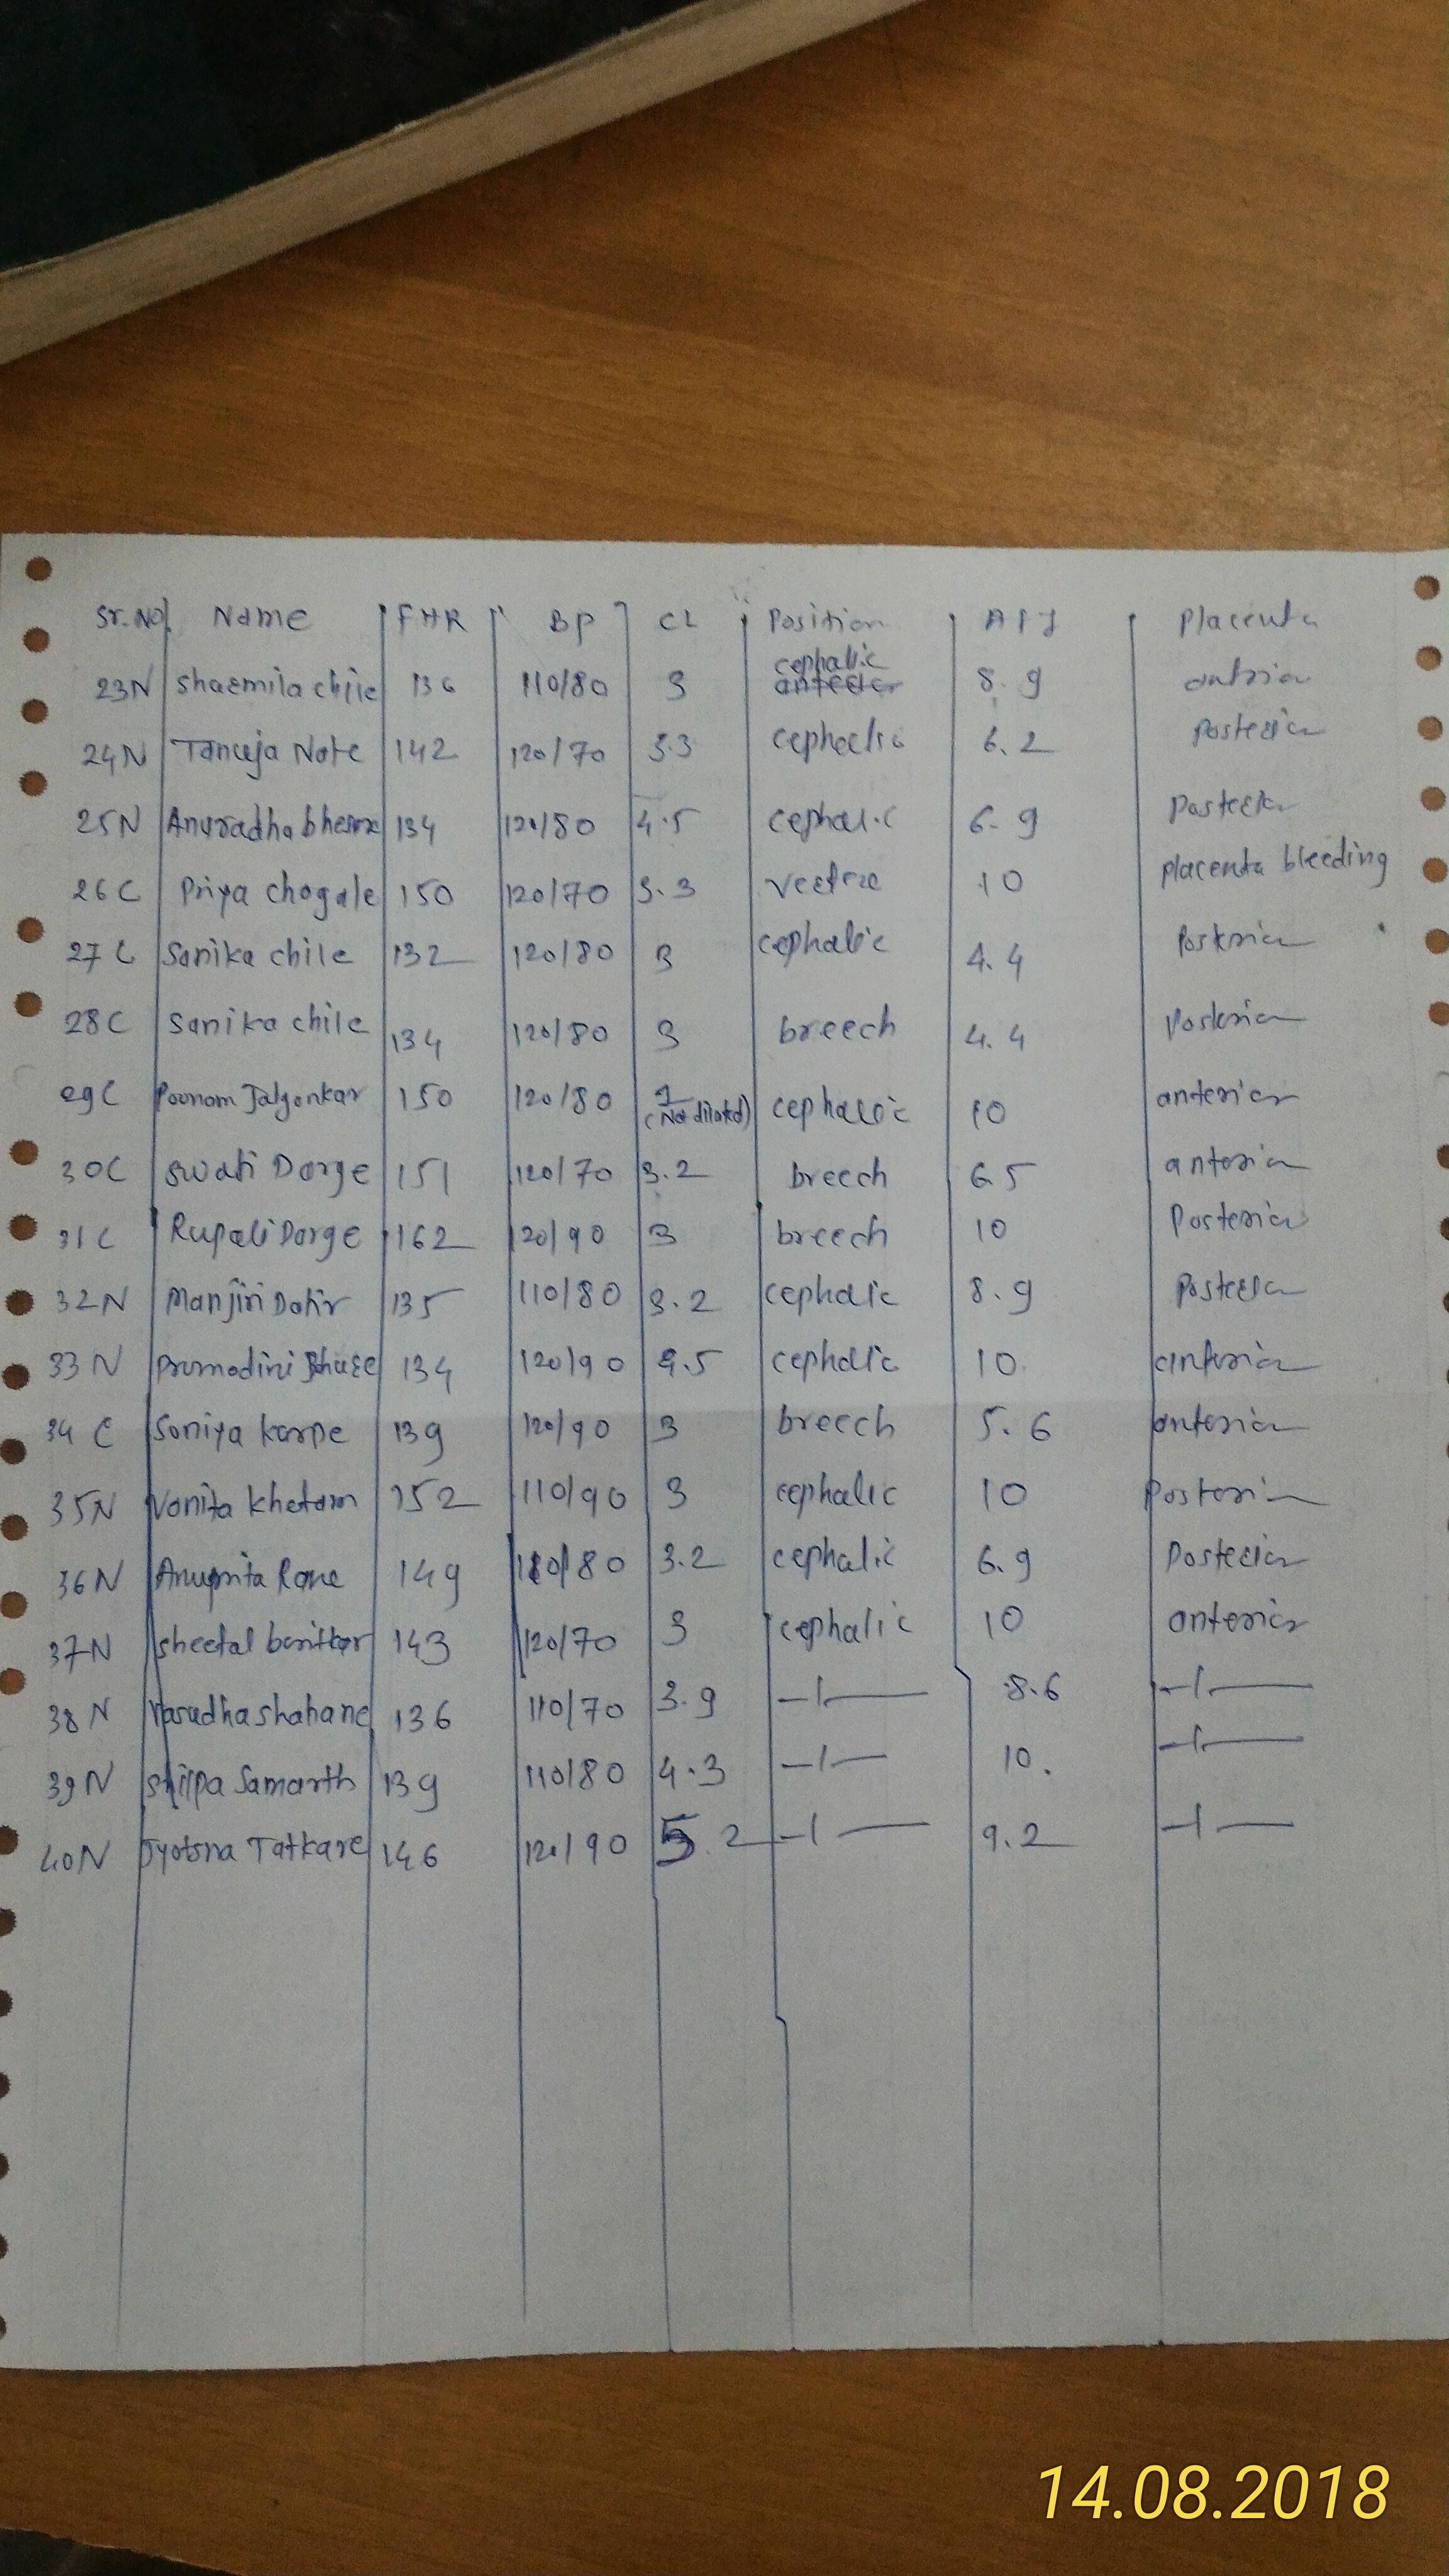 Sr.No Name FHR BP CL Position AFI Placenta
cephalic
23N 136 110/80 3 8.9
24N Tanuja Note 142 120/70 3.3 6.2 Posterior
25N Anuradha 134 120/80 4.5 cephalic 6.9
26C Priya chogale 150 120/70 3.3 10 placenta bleeding
27C Sanika chile 132 120/80 3 cephalic 4.4 Posterior
28C Sanika chile 134 120/80 3 breech 4.4 Posterior
29C Poonam Jalgonkar 150 120/80 cephalic 10 anterior
(Not dilated)
30C Swati Dorge 151 120/70 3.2 breech 6.5 anterior
31C Rupali Dorge 162 120/90 3 breech 10 Posterior
32N Manjiri 135 110/80 3.2 cephalic 8.9 Posterior
33N 134 120/90 cephalic 10 anterior
34C Soniya Karpe 139 120/90 3 breech 5.6 anterior
35N Vonita 152 110/90 3 cephalic 10 Posterior
36N Rane 149 3.2 cephalic 6.9 Posterior
37N Sheetal 143 120/70 3 cephalic 10 anterior
38N Vasudha Shahane 136 110/70 3.9 -1- 8.6 -1-
39N Shilpa Samarth 139 110/80 4.3 -1- 10. -1-
40N Jyotsna Tatkare 146 120/90 -1- 9.2 -1-
14.08.2018